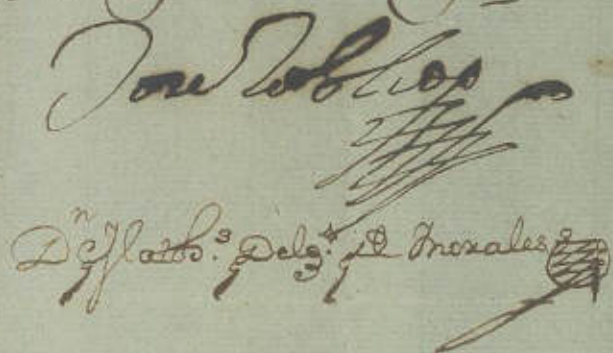 Jose Robledo
Dⁿ Math.ˢ Delg.º de Morales